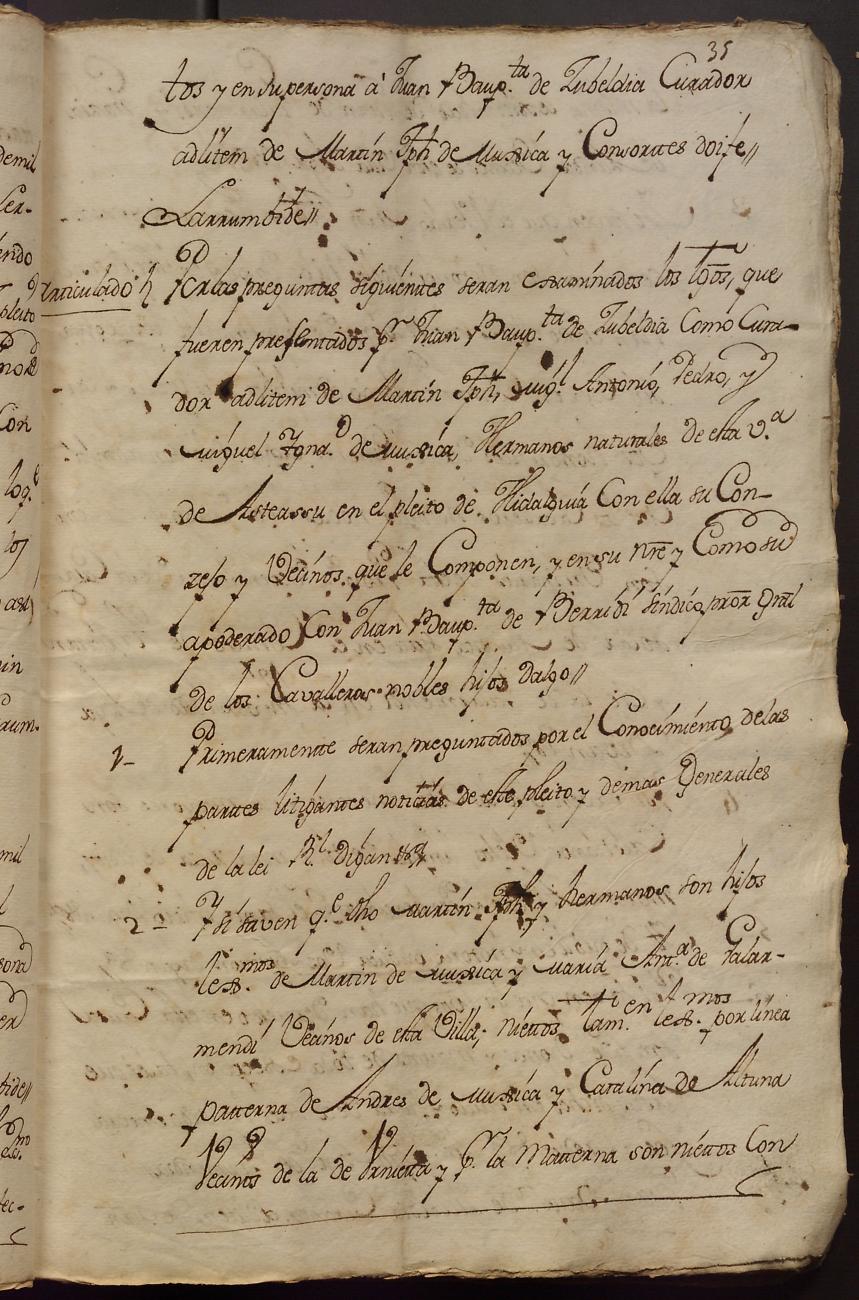 35
tos y en su persona à Juan Baup.ta de Zubeldia Curador
adlitem de Martin Jph de Muxica y Consortes doi fe//
Larrumbide//
Articulado
Por las preguntas siguientes seran examinados los tgos, que
fueren presentados p.r Juan Baup.ta de Zubeldia Como Cura-
dor adlitem de Martin Jph, Mig.l Antonio, Pedro, y
Miguel Igna.o de Muxica, Hermanos naturales de esta V.a
de Asteassu en el pleito de Hidalguia Con ella su Con-
zejo y Vecinos que le Componen, y en su nre y Como su
apoderado Con Juan Baup.ta de Berridi Sindico, pror Gral
de los Cavalleros nobles hijos dalgo//
1- Primeramente seran preguntados por el Conocimiento de las
partes litigantes noticias de este pleito y demas Generales
de la lei R.l digan
2- Y si saven q.e dho Martin Jph y hermanos son hijos
lex.mos de Martin de Muxica y Maria Ant.a de Galar-
mendi Vecinos de esta Villa; niettos tam.en lex.mos por linea
patterna de Andres de Muxica y Catalina de Altuna
Vecinos de la de Vrnietta y p.r la Matterna son niettos Con